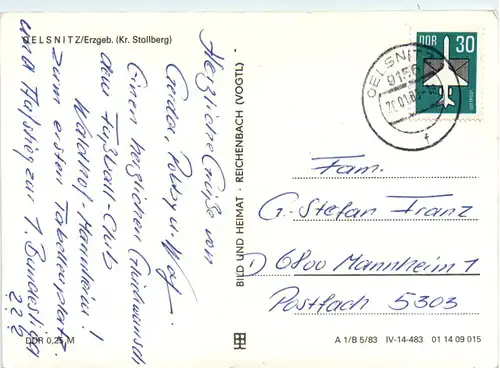 OELSNITZ/Erzgeb. (Kr. Stollberg)
Herzliche Grüße von
Gerda, Potty u. Wolf.
Einen herzlichen Glückwunsch
dem Fußball-Club
Waldhof-Mannheim!
zum ersten Tabellenplatz
und Aufstieg zur 1. Bundesliga
? ? ?
DDR 0,25 M
BILD UND HEIMAT · REICHENBACH (VOGTL)
DDR 30
OELSNITZ
f
Fam.
G. Stefan Franz
D 6800 Mannheim 1
Postfach 5303
A 1/B 5/83 IV-14-483 01 14 09 015